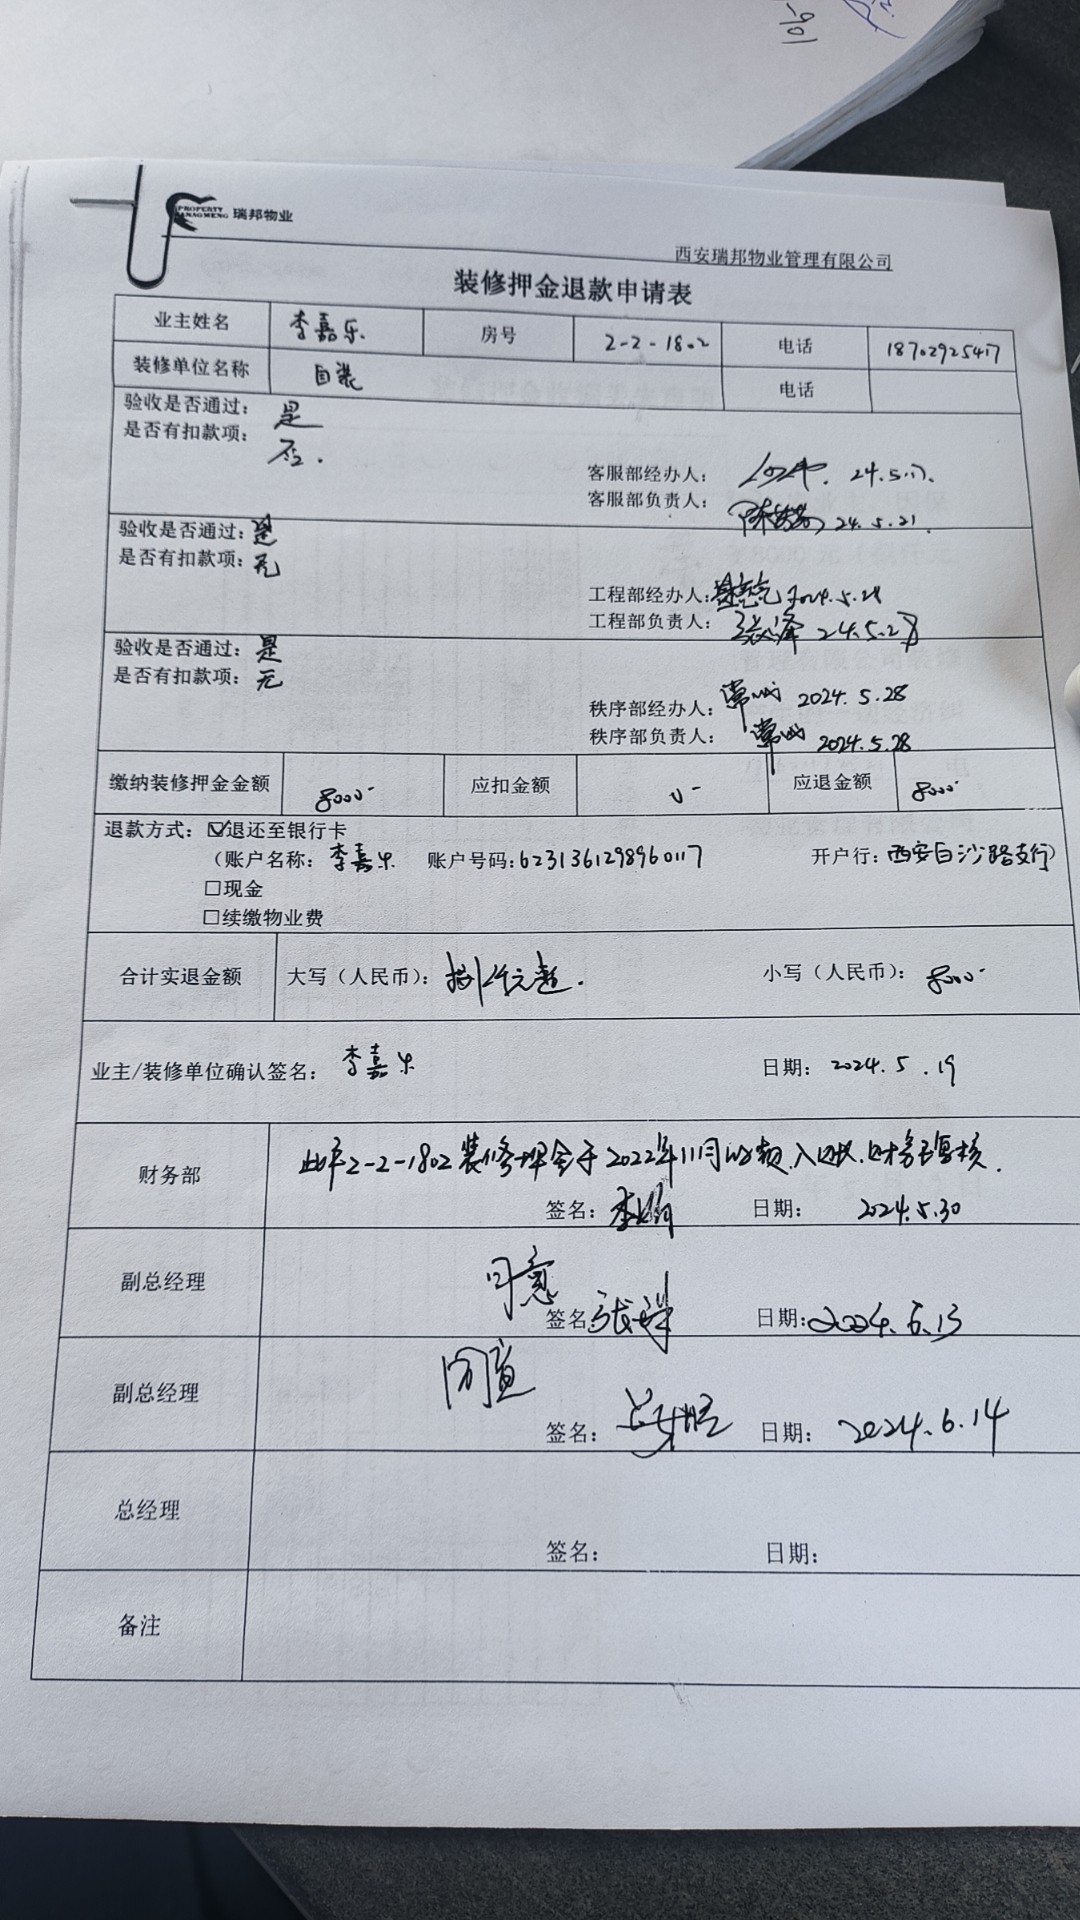 -901
PROPERTY
MANAGMENG 瑞邦物业
西安瑞邦物业管理有限公司
装修押金退款申请表
业主姓名 李嘉乐 房号 2-2-1802 电话 18702925417
装修单位名称 自装 电话
验收是否通过: 是
是否有扣款项: 否.
客服部经办人: 24.5.17.
客服部负责人: 24.5.21.
验收是否通过: 是
是否有扣款项: 无
工程部经办人: 2024.5.28
工程部负责人: 24.5.28
验收是否通过: 是
是否有扣款项: 无
秩序部经办人: 2024.5.28
秩序部负责人: 2024.5.28
缴纳装修押金金额 8000- 应扣金额 0- 应退金额 8000-
退款方式: ☑退还至银行卡
(账户名称: 李嘉乐 账户号码:6231361298960117 开户行: 西安白沙路支行)
□现金
□续缴物业费
合计实退金额 大写(人民币): 捌仟元整. 小写(人民币): 8000-
业主/装修单位确认签名: 李嘉乐 日期: 2024.5.19
财务部 此户2-2-1802装修押金于2022年11月 财务已复核.
签名: 李娟 日期: 2024.5.30
副总经理 同意
签名: 日期: 2024.6.13
副总经理 同意
签名: 日期: 2024.6.14
总经理
签名: 日期:
备注